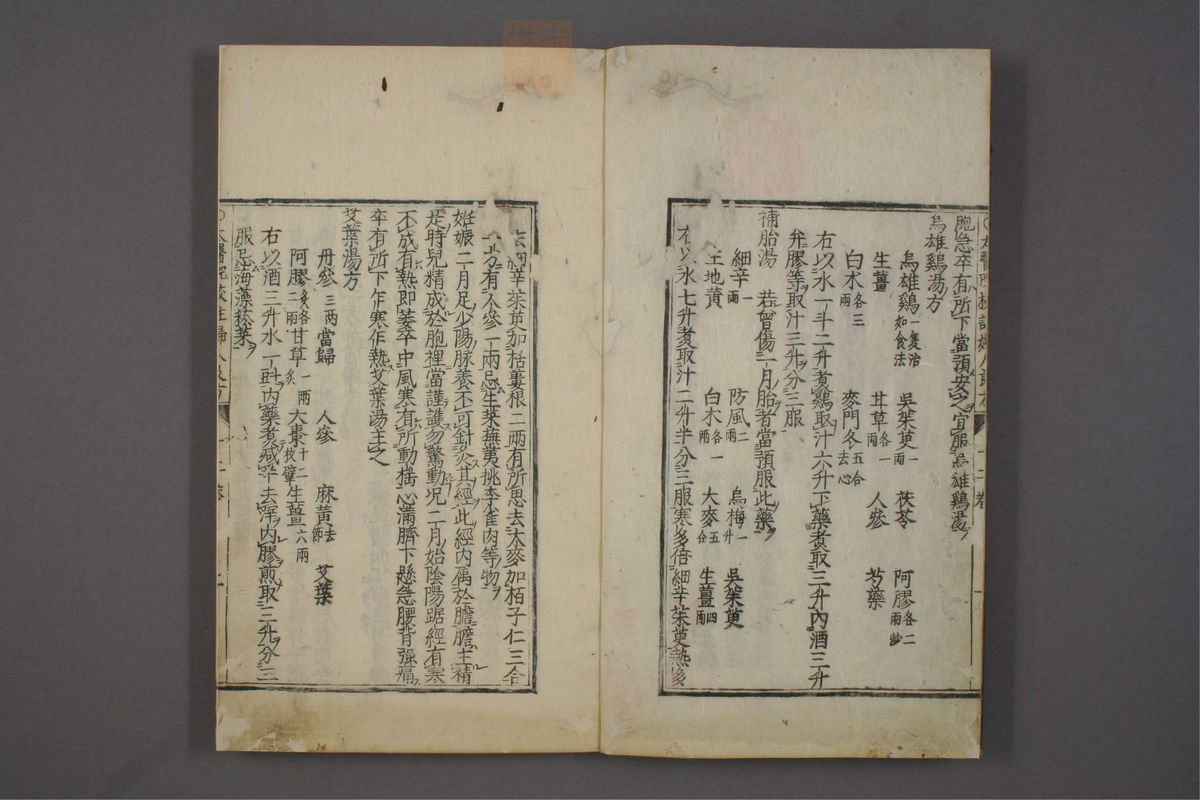 胞急卒有所下當預安之宜服烏雄鷄湯
烏雄鷄湯方
烏雄鷄一隻治如食法 吳茱萸一兩 茯苓 阿膠各二兩炒
生薑 甘草各一兩 人參 芍藥
白朮各三兩 麥門冬五合去心
右以水一斗二升煮鷄取汁六升下藥煮取三升內酒三升
弁膠等取汁三升分三服
補胎湯 若曾傷一月胎者當預服此藥
細辛一兩 防風二兩 烏梅一升 吳茱萸
生地黃 白朮各一兩 大麥五合 生薑四兩
右以水七升煮取汁二升半分三服寒多倍細辛茱萸熱多
去細辛茱萸加栝蔞根二兩有所思去大麥加栢子仁三合
一方有人參一兩忌生菜蕪荑桃李雀肉等物
妊娠二月足少陽脉養不可針灸其經此經內屬於膽膽主精
是時兒精成於胞裡當謹護勿驚動況二月始陰陽踞經有寒
不成有熱即萎卒中風寒有所動搖心滿臍下懸急腰背强痛
卒有所下乍寒乍熱艾葉湯主之
艾葉湯方
丹參三兩 當歸 人參 麻黃去節 艾葉
阿膠炙各二兩 甘草炙一兩 大棗十二枚擘 生薑六兩
右以酒三升水一斗內藥煮減半去滓內膠煎取三升分三
服忌海藻菘菜